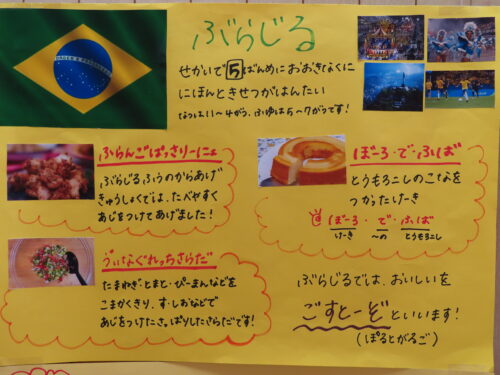 ぶらじる
せかいで5ばんめにおおきなくに
にほんときせつがはんたい
なつは11〜4がつ、ふゆは5〜7がつです!
ふらんごぱっさりーにょ
ぶらじるふうのからあげ
きゅうしょくでは、たべやすく
あじをつけてあげました!
ゔぃなぐれっちさらだ
たまねぎ・とまと・ぴーまんなどを
こまかくきり、す・しおなどで
あじをつけたさっぱりしたさらだです!
ぼーろ・で・ふば
とうもろこしのこなを
つかったけーき
ぼーろ・で・ふば
けーき 〜の とうもろこし
ぶらじるでは、おいしいを
ごすとーぞといいます!
(ぽるとがるご)